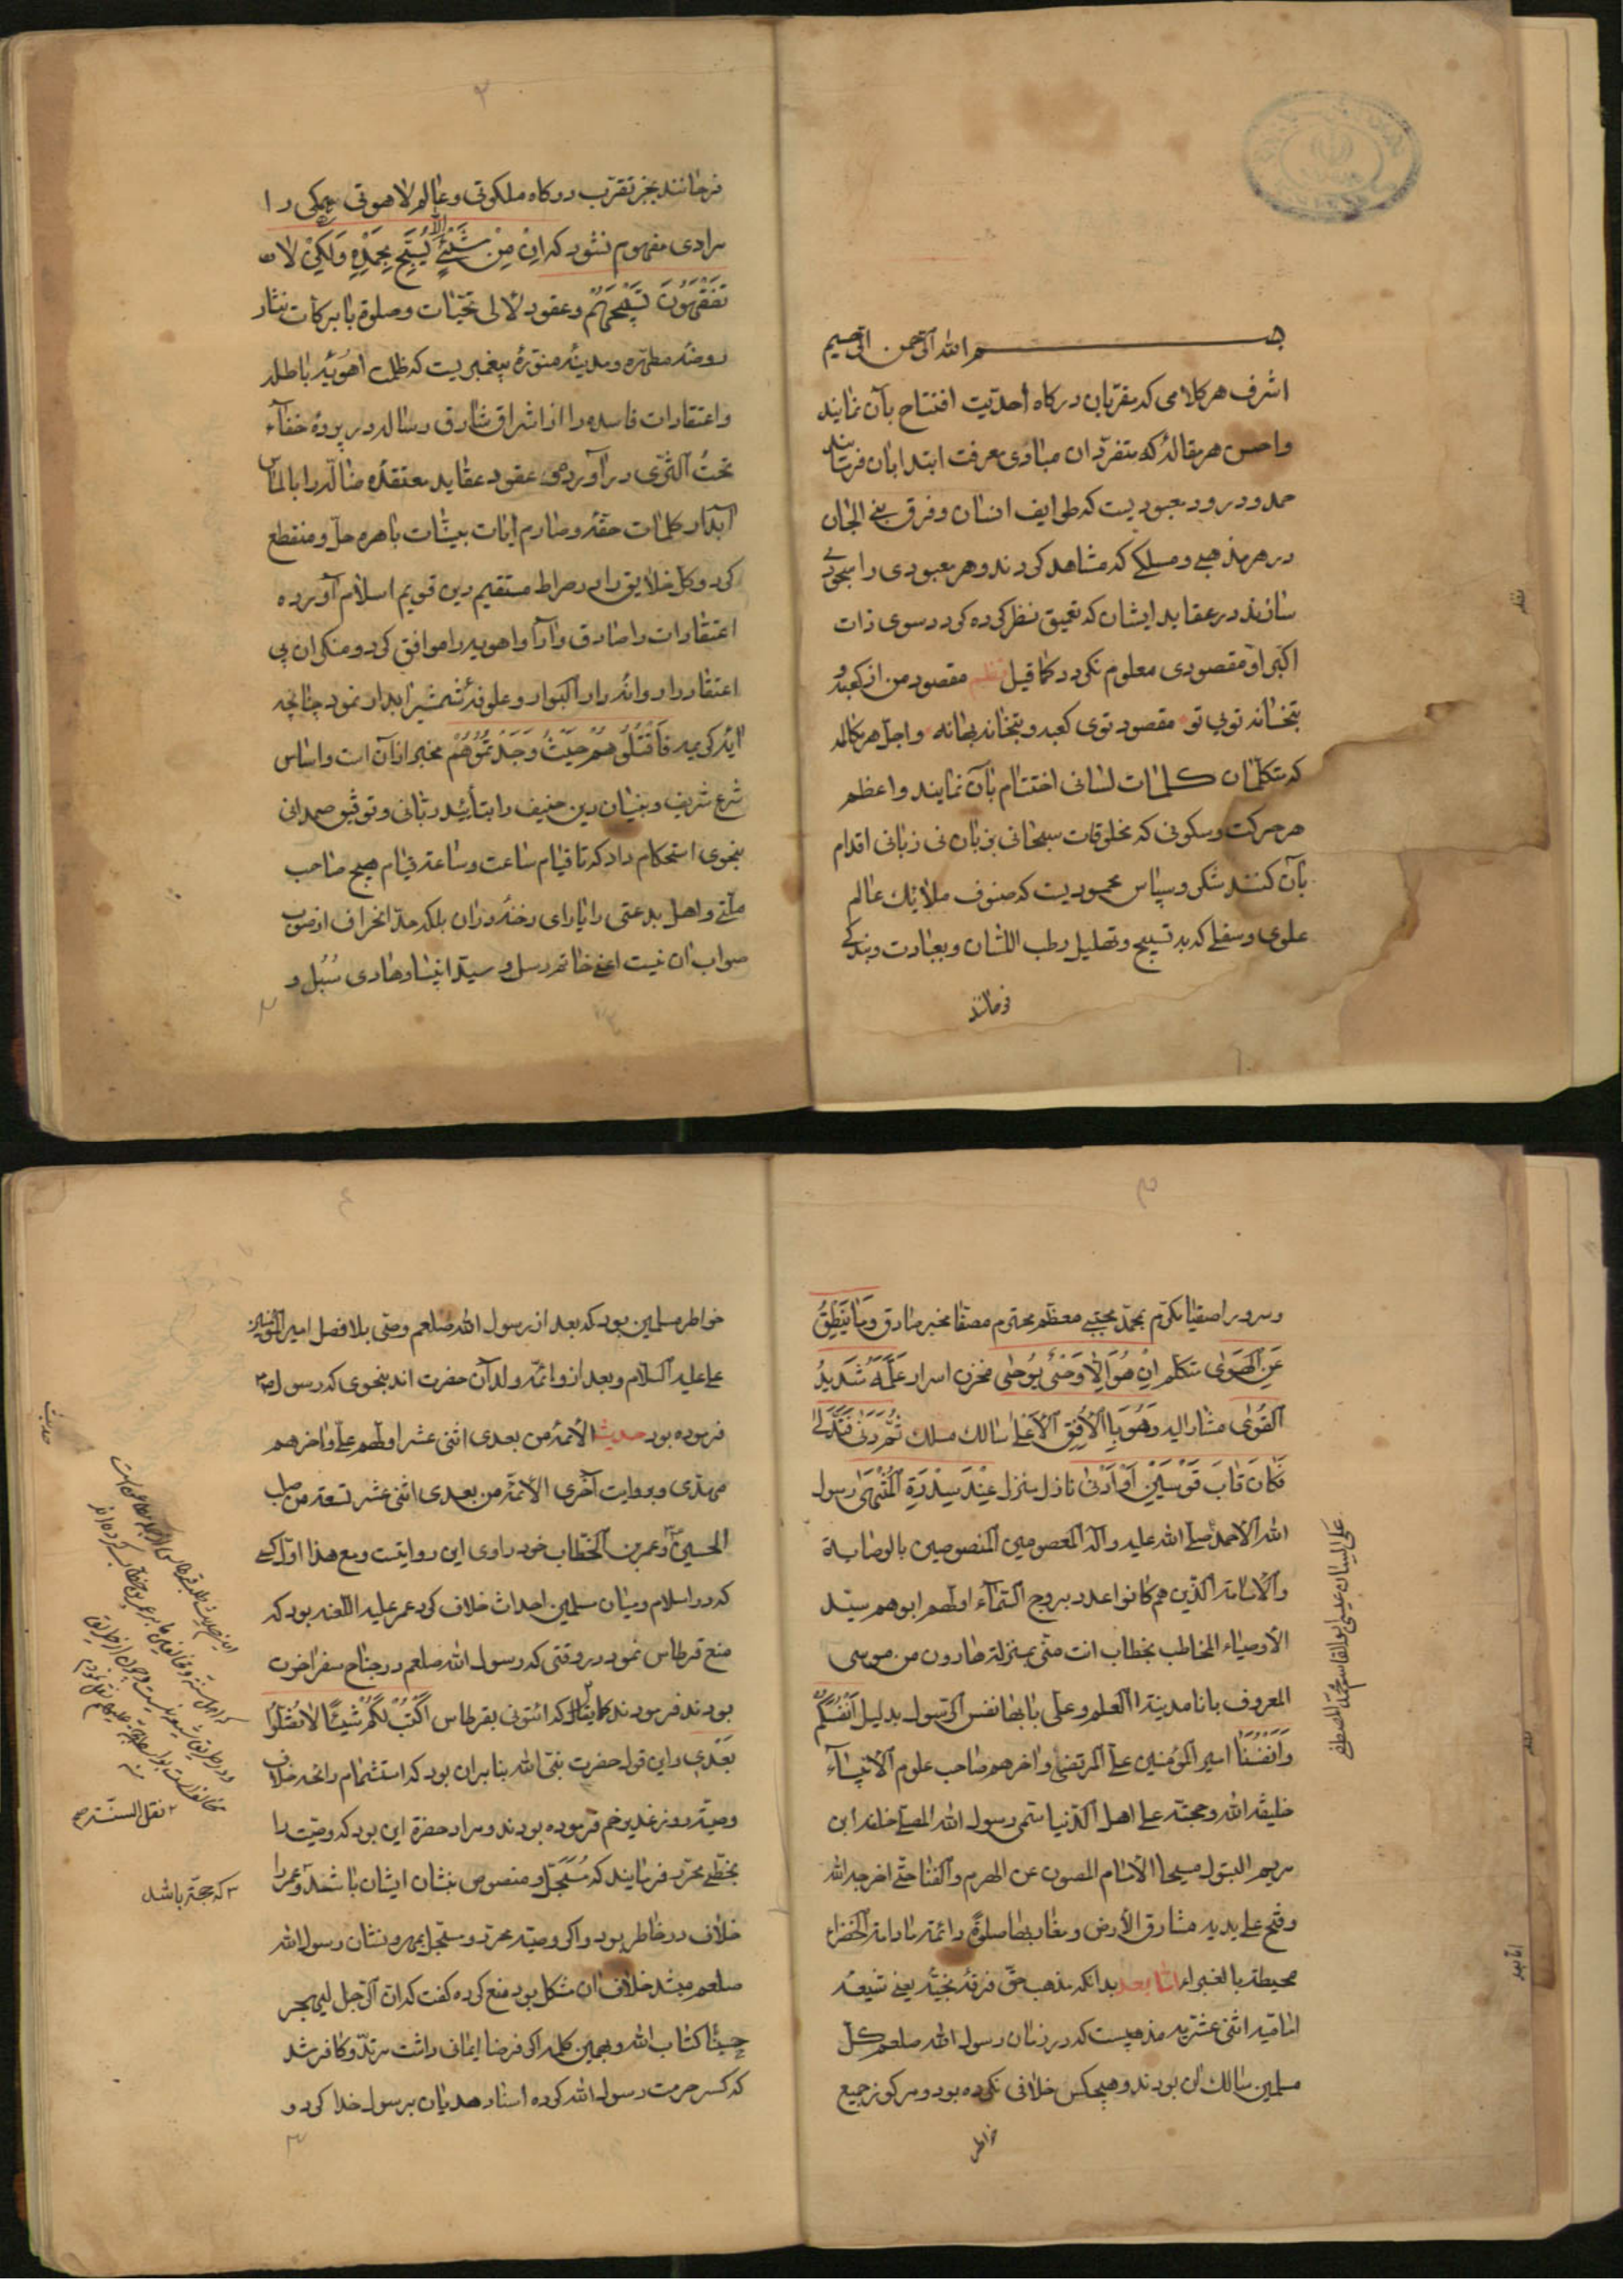 بسم الله الرحمن الرحیم
اشرف هر کلامی که مقربان درکاه احدیت افتتاح بآن نمایند
واحسن هر مقالهٔ که متفردان مبادی معرفت ابتدا بآن فرمایند
حمد ودرود معبودیست که طوایف انسان وفرق بنی الجان
در هر مذهبی ومسلکی که مشاهد کردند وهر معبودی را مسجودی
سازند در عقاید ایشان که تعمیق نظر کرده کردد سوی ذات
اکبر او مقصودی معلوم نکردد کما قیل نظم مقصود من از کعبه و
بتخانه تویی تو مقصود توی کعبه وبتخانه بهانه واجل هر مقاله
که متکلمان کلمات لسانی اختتام بآن نمایند واعظم
هر حرکت وسکونی که مخلوقات سبحانی بزبان بی زبانی اقدام
بآن کنند شکر وسپاس محمودیست که صنوف ملائک عالم
علوی وسفلی که به تسبیح وتهلیل رطب اللسان وبعبادت وبندکی
فرمانند
۲
فرمانند بجز تقرب درکاه ملکوتی وعالم لاهوتی همکی را
مرادی مفهوم نشود که ان من شئ الا یسبح بحمده ولکن لا
تفقهون تسبیحهم وعقود لآلی تحیات وصلوة بابرکات نثار
روضهٔ مطهره ومدینهٔ منورهٔ پیغمبریست که ظلمت اهویهٔ باطله
واعتقادات فاسده را از اشراق شارق رساله در پردهٔ خفآء
تحت الثری در آورد وعقود عقاید معتقدهٔ ضاله را بالماس
آبدار کلمات حقه وصارم آیات بینات باهره حل ومنقطع
کرد وکل خلایق را در صراط مستقیم دین قویم اسلام آورده
اعتقادات را صادق وآرآ واهویه را موافق کرد ومنکران بی
اعتقاد را دوانهٔ دار البوار وعلوفهٔ شمشیر ابدار نمود چنانچه
آیهٔ کریمه فاقتلوهم حیث وجدتموهم مخبر از آن است واساس
شرع شریف وبنیان دین حنیف را بتأیید ربانی وتوفیق صمدانی
بنحوی استحکام داد که تا قیام ساعت وساعة قیام هیچ صاحب
ملتی واهل بدعتی را یارای رخنه در آن بلکه حد انحراف از صوب
صواب آن نیست اعنی خاتم رسل وسید انبیا وهادی سبل و
۳
وسرور اصفیا مکرم بمحمد مجتبی معظم محترم مصطفا مخبر صادق وما ینطق
عن الهوی متکلم ان هو الا وحی یوحی مخزن اسرار علمه شدید
القوی مشار الیه وهو بالافق الاعلی سالک مسلک ثم دنی فتدلی
فکان قاب قوسین او ادنی نازل منزل عند سدرة المنتهی رسول
الله الامجد صلی الله علیه وآله المعصومین المنصوصین بالوصایة
والامامة الذین هم کانوا عدد بروج السمآء اولهم ابوهم سید
الاوصیاء المخاطب بخطاب انت منی بمنزلة هارون من موسی
المعروف بانا مدینة العلم وعلی بابها نفس الرسول بدلیل انفسکم
وانفسنا امیر المؤمنین علی المرتضی وآخرهم صاحب علوم الانبیآء
خلیفة الله وحجته علی اهل الدنیا سمی رسول الله المصلی خلفه ابن
مریم البتول مسیحا الامام المصون عن الهرم والفنا حتی اخرجه الله
وفتح علی یدیه مشارق الارض ومغاربها صلوة دائمة مادامة الخضراء
محیطة بالغبراء اما بعد بدانکه مذهب حق فرقهٔ نجیه یعنی شیعهٔ
امامیه اثنی عشریه مذهبیست که در زمان رسول الله صلعم کل
مسلمین سالک آن بودند وهیچکس خلافی نکرده بود ومرکوز جمیع
خواطر
علی لسان عیسی ابو القاسم محمد المصطفی
٤
خواطر مسلمین بود که بعد از رسول الله صلعم وصی بلا فصل امیر المؤمنین
علی علیه السلام وبعد از او ائمهٔ ولد آن حضرت اند بنحوی که رسول ص
فرموده بود حدیث الائمة من بعدی اثنی عشر اولهم علی وآخرهم
مهدی وبروایت آخری الائمة من بعدی اثنی عشر تسعة من صلب
الحسین وعمر بن الخطاب خود راوی این روایتست ومع هذا اول کسی
که در اسلام ومیان مسلمین احداث خلاف کرد عمر علیه اللعنه بود که
منع قرطاس نمود در وقتی که رسول الله صلعم در جناح سفر آخرت
بودند فرمودند کما یقال که ائتونی بقرطاس اکتب لکم شیئا لا تضلوا
بعدی واین قول حضرت نبی الله بنابر آن بود که استشمام رائحه خلاف
وصیة روز غدیر خم فرموده بودند ومراد حضرة این بود که وصیت را
بخطی محرر فرمایند که مسجل ومنصوص بنشان ایشان باشد وعمر را
خلاف در خاطر بود واکر وصیته محرر ومسجل بمهر ونشان رسول الله
صلعم میشد خلاف آن مشکل بود منع کرده کفت که ان الرجل لیهجر
حسبنا کتاب الله وبهمین کلمه اکر فرضا ایمان داشت مرتد وکافر شد
که کسر حرمت رسول الله کرده اسناد هذیان برسول خدا کرد و
نقل السنة
که حجة باشد